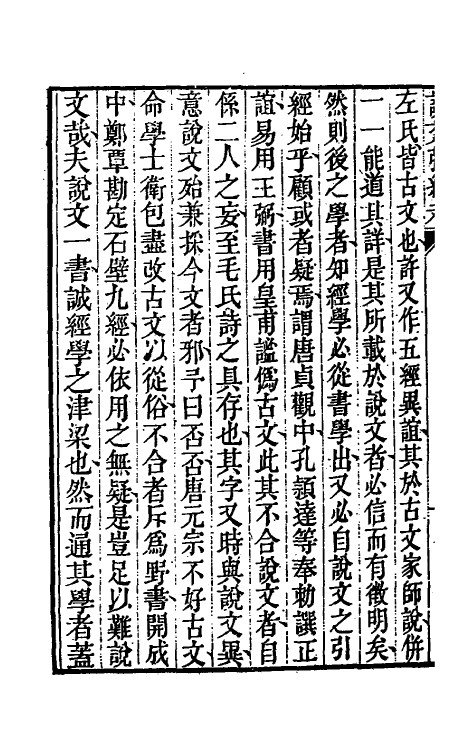 左氏皆古文也許又作五經異誼其於古文家師說併
一一能道其詳是其所載於說文者必信而有徵明矣
然則後之學者知經學必從書學出又必自說文之引
經始乎顧或者疑焉謂唐貞觀中孔頴達等奉勅譔正
誼易用王弼書用皇甫謐僞古文此其不合說文者自
係二人之妄至毛氏詩之具存也其字又時與說文異
意說文殆兼採今文者邪予曰否否唐元宗不好古文
命學士衛包盡改古文以從俗不合者斥爲野書開成
中鄭覃勘定石壁九經必依用之無疑是豈足以難說
文哉夫說文一書誠經學之津梁也然而通其學者蓋